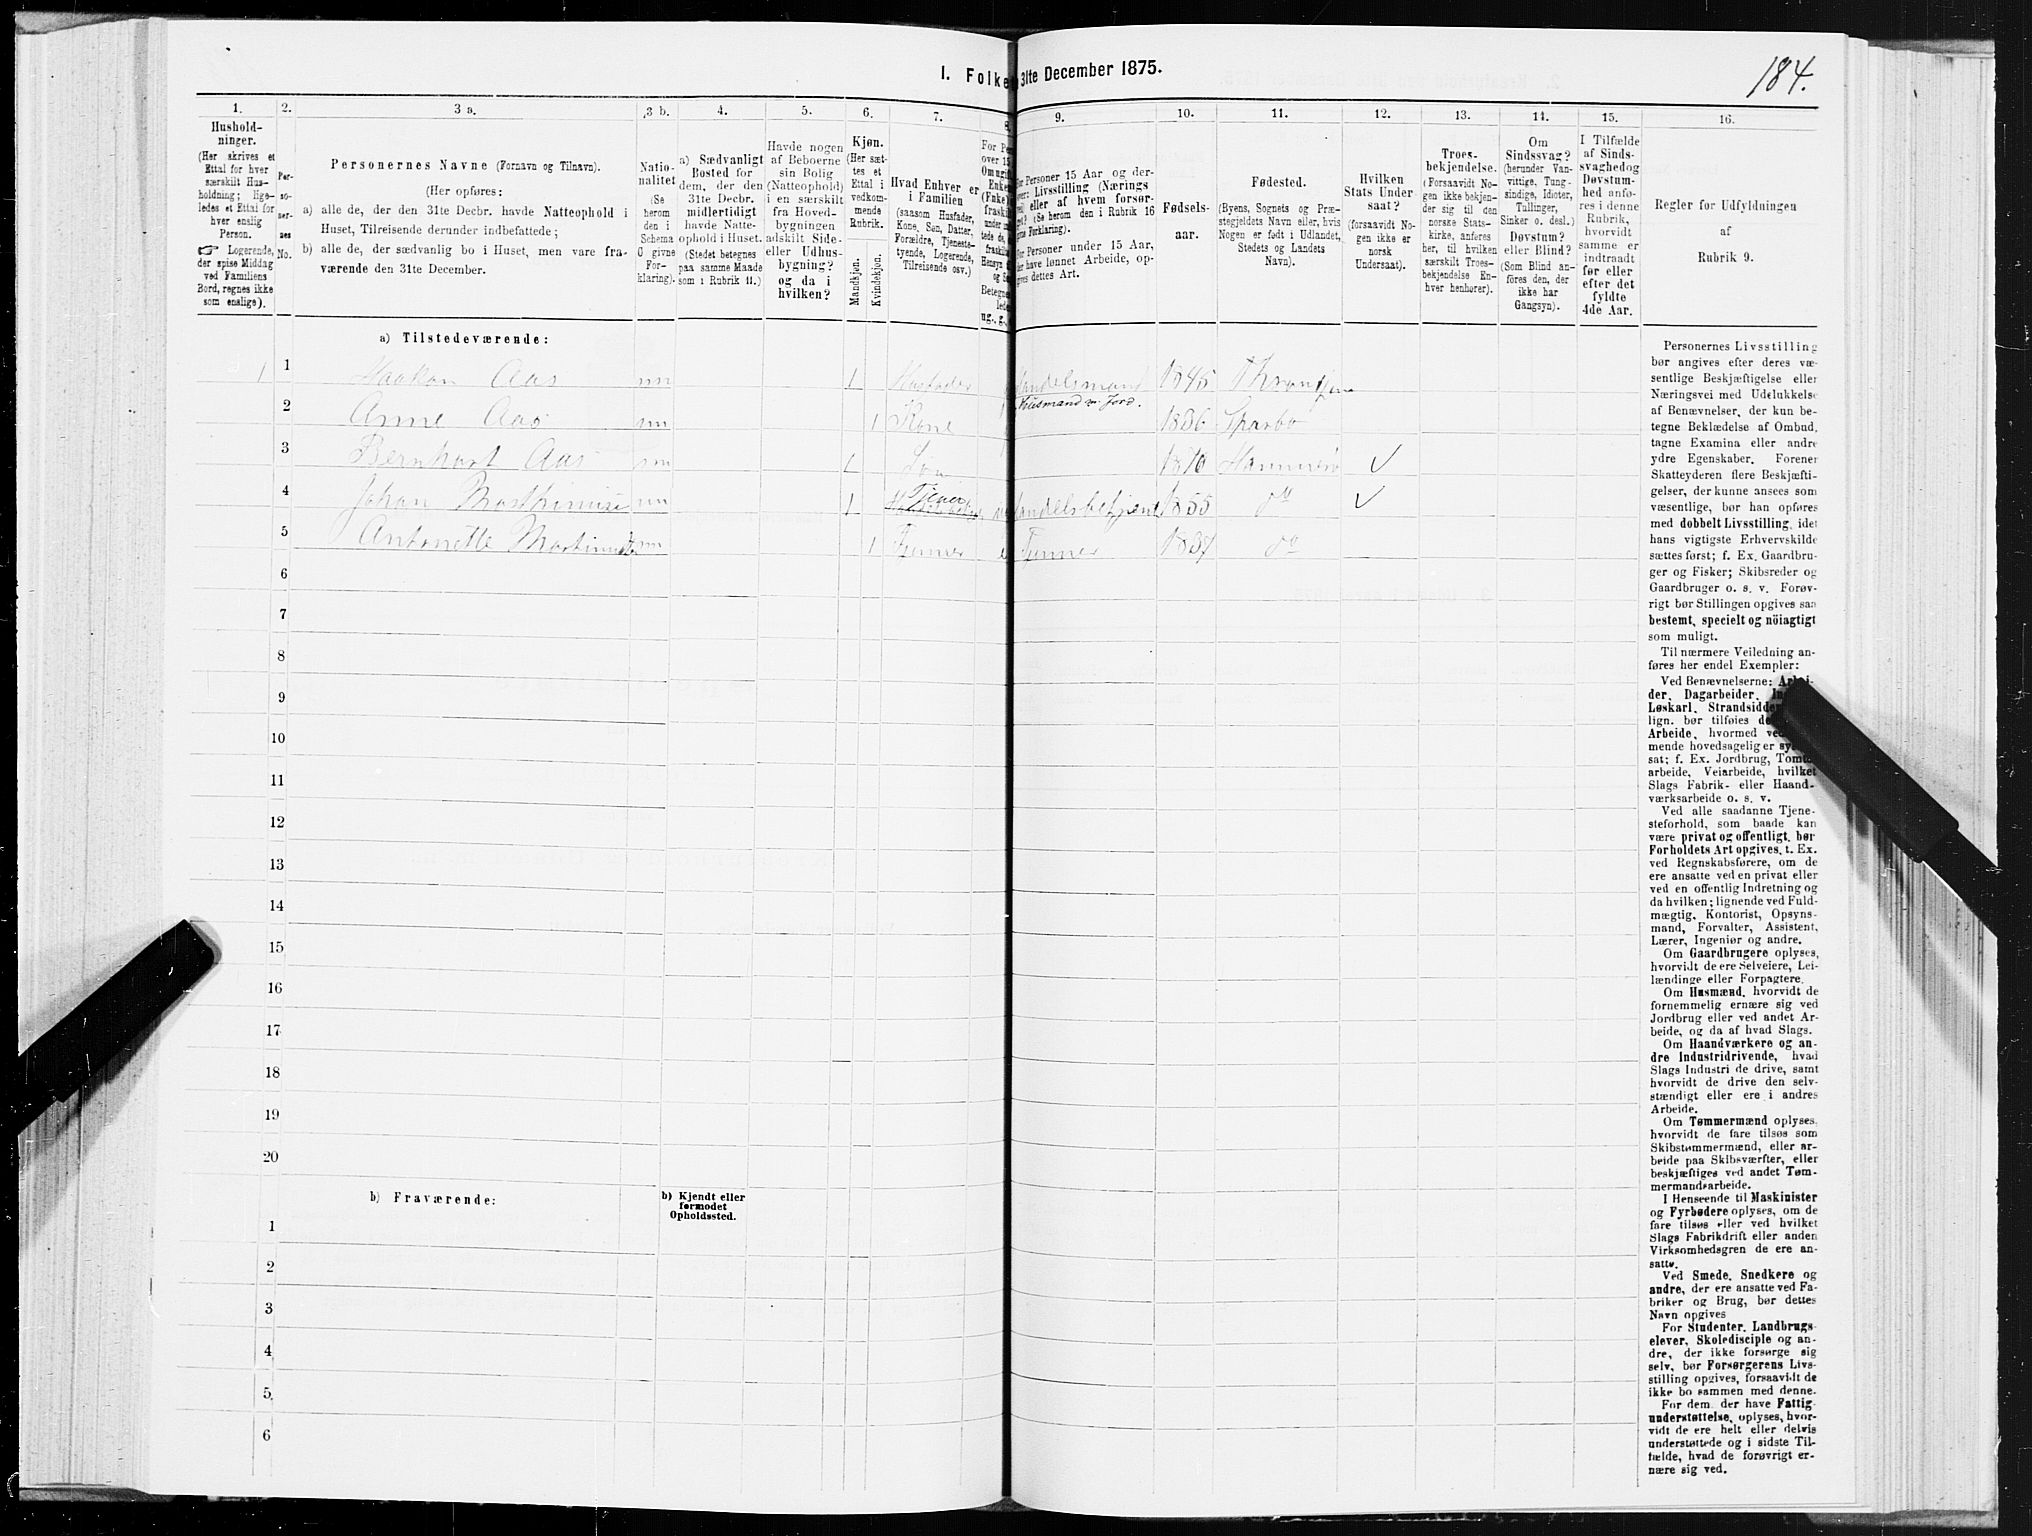 I. Folke 31te December 1875.
184.
1. 2. 3 a. 3 b. 4. 5. 6. 7. 8. 9. 10. 11. 12. 13. 14. 15. 16.
Hushold-
ninger.
(Her skrives et
Ettal for hver
særskilt Hus-
holdning; lige-
ledes et Ettal for
hver enslig
Person.
☞ Logerende,
der spise Middag
ved Familiens
Bord, regnes ikke
som enslige).
Per-
so-
ner-
nes
No.
Personernes Navne (Fornavn og Tilnavn).
(Her opføres:
a) alle de, der den 31te Decbr. havde Natteophold i
Huset, Tilreisende derunder indbefattede;
b) alle de, der sædvanlig bo i Huset, men vare fra-
værende den 31te December.
Natio-
nalitet
(Se
herom
den i
Schema
O givne
For-
klaring).
a) Sædvanligt
Bosted for
dem, der den
31te Decbr.
midlertidigt
havde Natte-
ophold i Huset.
(Stedet betegnes
paa samme Maade
som i Rubrik 11.)
Havde nogen
af Beboerne
sin Bolig
(Natteophold)
i en særskilt
fra Hoved-
bygningen
adskilt Side-
eller Udhus-
bygning?
og da i
hvilken?
Kjøn.
(Her sæt-
tes et
Ettal i
vedkom-
mende
Rubrik.
Mandkjøn.
Kvindekjøn.
Hvad Enhver er
i Familien
(saasom Husfader,
Kone, Søn, Datter,
Forældre, Tjeneste-
tyende, Logerende,
Tilreisende osv.)
For Pe
over 15
Omgift
Enke
(Fnke)
fraskilt
Betegn
lede
ug., g.,
For Personer 15 Aar og der-
over: Livsstilling (Nærings
vei) eller af hvem forsør-
get? (Se herom den i Rubrik 16
givne Forklaring).
For Personer under 15 Aar,
der have lønnet Arbeide, op-
gives dettes Art.
Fødsels-
aar.
Fødested.
(Byens, Sognets og Præ-
stegjeldets Navn eller, hvis
Nogen er født i Udlandet,
Stedets og Landets
Navn).
Hvilken
Stats Under
saat?
(forsaavidt No-
gen ikke er
norsk
Undersaat).
Troes-
bekjendelse.
(Forsaavidt No-
gen ikke bekjen-
der sig til den
norske Stats-
kirke, anføres
her, til hvilken
særskilt Troes-
bekjendelse En-
hver henhører).
Om
Sindssvag?
(herunder Van-
vittige, Tung-
sindige, Idioter,
Tullinger,
Sinker o. desl.)
Døvstum?
eller Blind?
(Som Blind an-
føres den, der
ikke har
Gangsyn).
I Tilfælde
af Sinds-
svaghed og
Døvstum-
hed anfø-
res i denne
Rubrik,
hvorvidt
samme er
indtraadt
før eller
efter det
fyldte
4de Aar.
Regler for Udfyldningen
af
Rubrik 9.
a) Tilstedeværende:
1 1 Haakon Aas nn 1 Husfader Handelsmand 1845 Throndhjem
Husmand m. Jord.
2 Anne Aas nn 1 Kone 1836 Sparbo
3 Bernhart Aas nn 1 Søn 1870 ✓
4 Johan nn 1 Tjener Handelsbetjent 1855 do ✓
5 Antonette nn 1 Tjener Tjener 1837 do
6
7
8
9
10
11
12
13
14
15
16
17
18
19
20
b) Fraværende:
b) Kjendt eller
formodet
Opholdssted.
1
2
3
4
5
6
Personernes Livsstilling
bør angives efter deres væ-
sentlige Beskjæftigelse eller
Næringsvei med Udelukkelse
af Benævnelser, der kun be-
tegne Beklædelse af Ombud,
tagne Examina eller andre
ydre Egenskaber. Forener
Skatteyderen flere Beskjæfti-
gelser, der kunne ansees som
væsentlige, bør han opføres
med dobbelt Livsstilling, idet
hans vigtigste Erhvervskilde
sættes først; f. Ex. Gaardbru-
ger og Fisker; Skibsreder og
Gaardbruger o. s. v. Forøv-
rigt bør Stillingen opgives saa
bestemt, specielt og nöiagtigt
som muligt.
Til nærmere Veiledning an-
føres her endel Exempler:
Ved Benævnelserne: Arbei-
der, Dagarbeider,
Løskarl, Strandsidder
lign. bør tilføies
Arbeide, hvormed
mende hovedsagelig er
sat; f. Ex. Jordbrug, Tomt
arbeide, Veiarbeide, hvilket
Slags Fabrik- eller Haand-
værksarbeide o. s. v.
Ved alle saadanne Tjene-
steforhold, som baade kan
være privat og offentligt, bør
Forholdets Art opgives, f. Ex.
ved Regnskabsførere, om de
ere ansatte ved en privat eller
ved en offentlig Indretning og
da hvilken; lignende ved Fuld-
mægtig, Kontorist, Opsyns-
mand, Forvalter, Assistent,
Lærer, Ingeniør og andre.
Om Gaardbrugere oplyses,
hvorvidt de ere Selveiere, Lei-
lændinge eller Forpagtere.
Om Husmænd, hvorvidt de
fornemmelig ernære sig ved
Jordbrug eller ved andet Ar-
beide, og da af hvad Slags.
Om Haandværkere og an-
dre Industridrivende, hvad
Slags Industri de drive, samt
hvorvidt de drive den selv-
stændigt eller ere i andres
Arbeide.
Om Tømmermænd oplyses,
hvorvidt de fare tilsøs som
Skibstømmermænd, eller ar-
beide paa Skibsværfter, eller
beskjæftiges ved andet Tøm-
mermandsarbeide.
I Henseende til Maskinister
og Fyrbødere oplyses, om de
fare tilsøs eller ved hvilket
Slags Fabrikdrift eller anden
Virksomhedsgren de ere an-
satte.
Ved Smede, Snedkere og
andre, der ere ansatte ved Fa-
briker og Brug, bør dettes
Navn opgives
For Studenter, Landbrugs-
elever, Skoledisciple og an-
dre, der ikke forsørge sig
selv, bør Forsørgerens Livs-
stilling opgives, forsaavidt de
ikke bo sammen med denne.
For dem, der have Fattig-
understøttelse, oplyses, hvor-
vidt de ere helt eller delvis
understøttede og i sidste Til-
fælde, hvad de forøvrigt er-
nære sig ved.